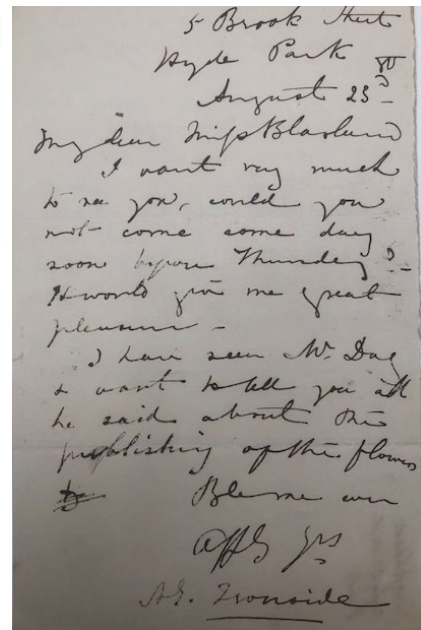 5 Brook Street
Hyde Park
August 23d
My dear Miss Blaxland
I want very much
to see you, could you
not come some day
soon before Thursday?
It would give me great
pleasure -
I have seen Mr. Day
& want to tell you all
he said about the
publishing of the flowers
Bleme ever
Affly yrs
A. E. Ironside